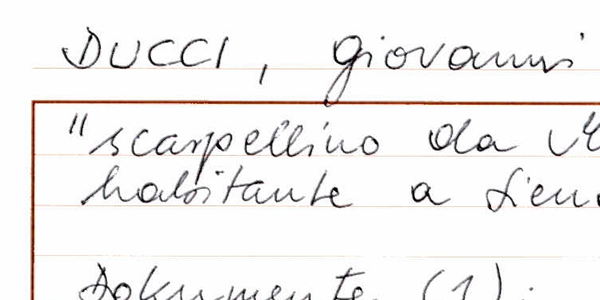 DUCCI, Giovanni
"scarpellino da
habitante a Siena
Dokumente (1):